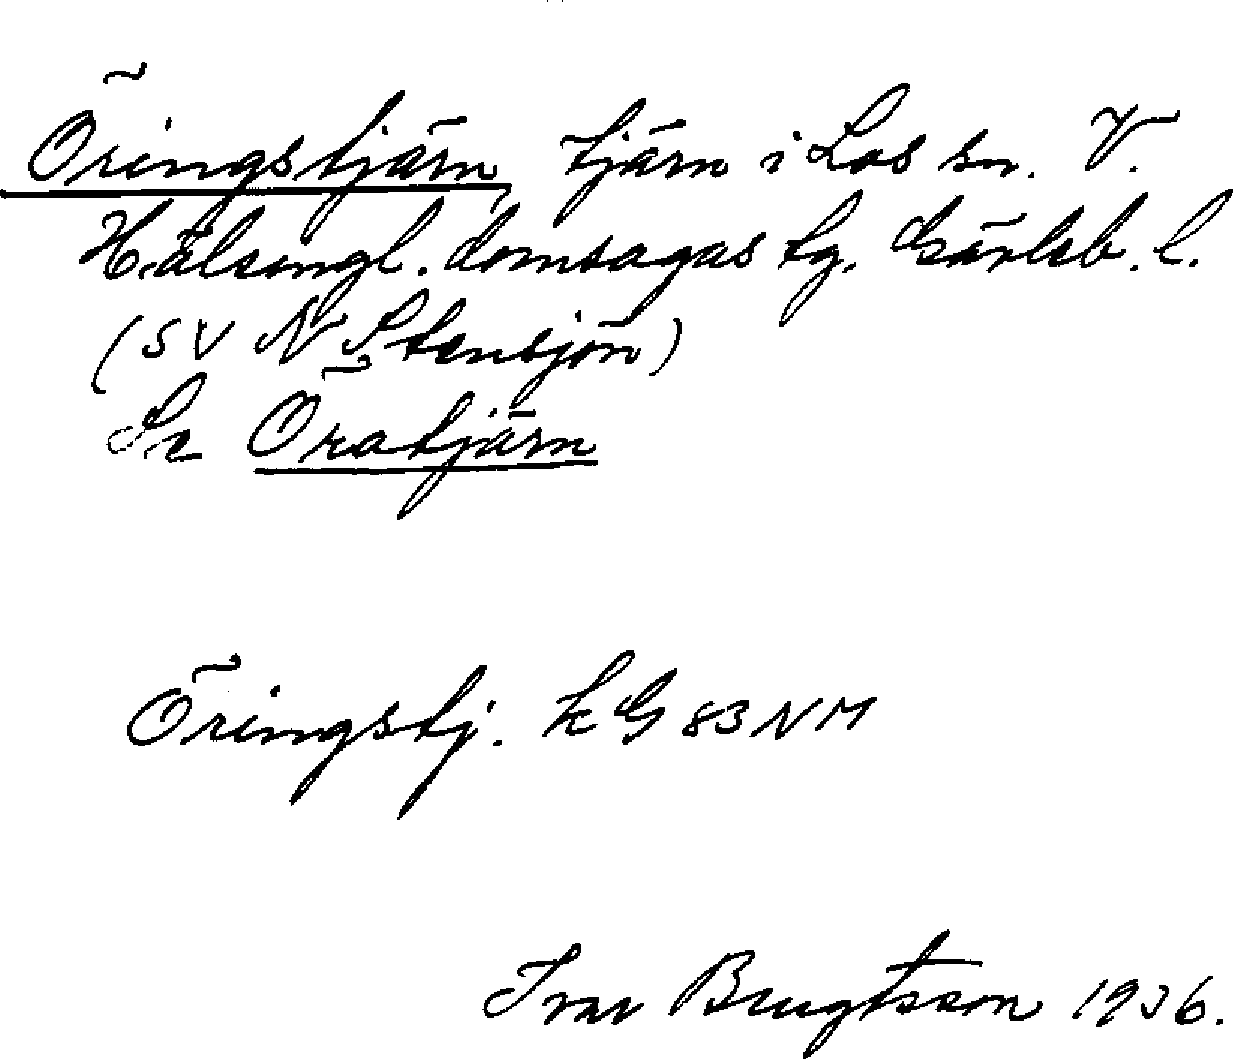 Öringstjärn, tjärn i Los sn. V.
Hälsingl. domsagas tg. Gävleb. l.
(SV N Stensjön)
Se Öratjärn
Öringstj. kG 83 NM
Ivar Bengtsson 1936.